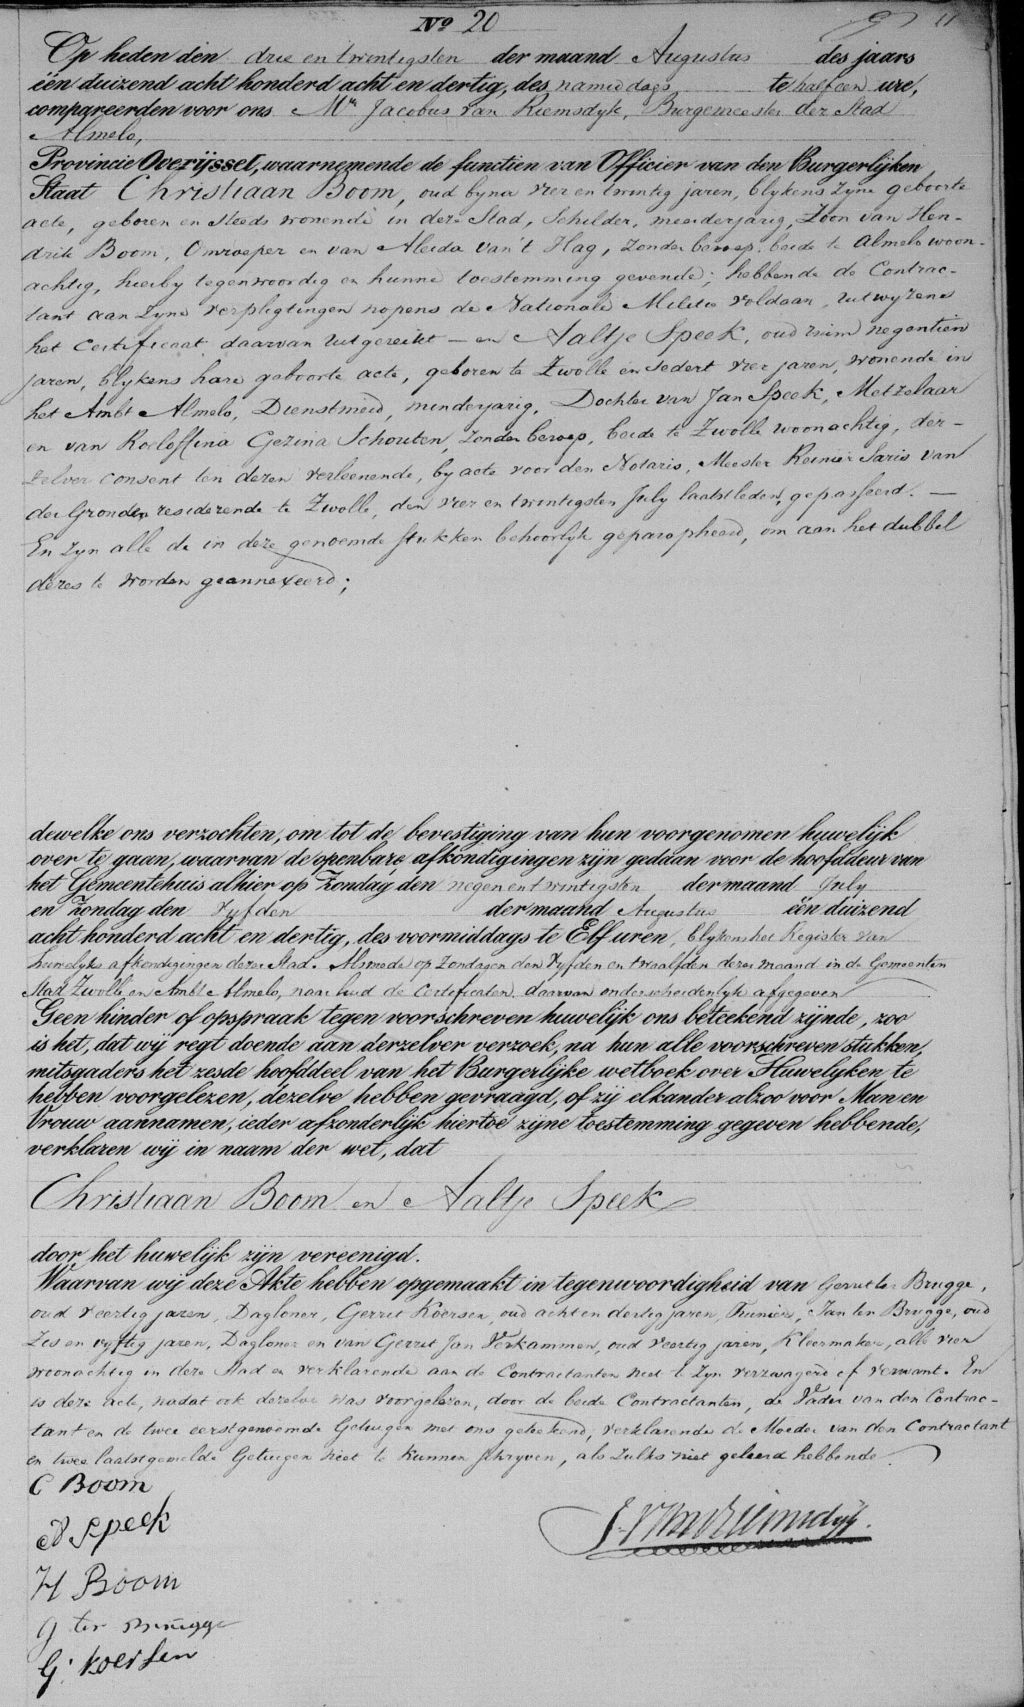 No 20
11
Op heden den drie en twintigsten der maand Augustus des jaars
één duizend acht honderd acht en dertig, des namiddags te half een ure,
compareerden voor ons Mr Jacobus van Riemsdyk, Burgemeester der Stad
Almelo,
Provincie Overijssel, waarnemende de functien van Officier van den Burgerlijken
Staat Christiaan Boom, oud byna vier en twintig jaren, blykens zyne geboorte
acte, geboren en steeds wonende in deze Stad, Schilder, meerderjarig, Zoon van Hen-
drik Boom, Omroeper en van Aleida van 't Hag, zonder beroep, beide te Almelo woon-
achtig, hierby tegenwoordig en hunne toestemming gevende; hebbende de Contrac-
tant aan zyne verpligtingen nopens de Nationale Militie voldaan, uitwyzens
het Certificaat daarvan uitgereikt — en Aaltje Speek, oud ruim negentien
jaren, blykens hare geboorte acte, geboren te Zwolle en sedert vier jaren, wonende in
het Ambt Almelo, Dienstmeid, minderjarig, Dochter van Jan Speek, Metzelaar
en van Roeloffina Gezina Schouten, zonder beroep, beide te Zwolle woonachtig, der-
zelver consent ten dezen verleenende, by acte voor den Notaris, Meester Reinier Saris van
der Gronden residerende te Zwolle, den vier en twintigsten July laatstleden, gepasseerd. —
En zyn alle de in deze genoemde stukken behoorlyk geparapheerd, om aan het dubbel
dezes te worden geannexeerd;
dewelke ons verzochten, om tot de bevestiging van hun voorgenomen huwelijk
over te gaan, waarvan de openbare afkondigingen zijn gedaan voor de hoofddeur van
het Gemeentehuis alhier op Zondag den negen en twintigsten der maand July
en Zondag den vyfden der maand Augustus één duizend
acht honderd acht en dertig, des voormiddags te Elf uren, blykens het Register van
huwelyks afkondigingen dezer Stad. Alsmede op Zondagen den vyfden en twaalfden dezer maand in de Gemeenten
Stad Zwolle en Ambt Almelo, naar luid de Certificaten daarvan onderscheidenlyk afgegeven
Geen hinder of opspraak tegen voorschreven huwelijk ons beteekend zijnde, zoo
is het, dat wij regt doende aan derzelver verzoek, na hun alle voorschreven stukken,
mitsgaders het zesde hoofddeel van het Burgerlijke wetboek over Huwelyken te
hebben voorgelezen, dezelve hebben gevraagd, of zij elkander alzoo voor Man en
Vrouw aannamen, ieder afzonderlijk hiertoe zijne toestemming gegeven hebbende,
verklaren wij in naam der wet, dat
Christiaan Boom en Aaltje Speek
door het huwelijk zijn vereenigd.
Waarvan wij deze Akte hebben opgemaakt in tegenwoordigheid van Gerrit ter Brugge,
oud veertig jaren, Dagloner, Gerrit Koersen, oud acht en dertig jaren, Jan ter Brugge, oud
zes en vyftig jaren, Dagloner en van Gerrit Jan Verkammen, oud veertig jaren, Kleermaker, alle vier
woonachtig in deze Stad en verklarende aan de Contractanten niet te zyn verzwagerd of verwant. En
is deze acte, nadat ook dezelve was voorgelezen, door de beide Contractanten, de Vader van den Contrac-
tant en de twee eerstgenoemde Getuigen met ons geteekend, verklarende de Moeder van den Contractant
en twee laatstgemelde Getuigen niet te kunnen schryven, als zulks niet geleerd hebbende.
C Boom
A Speek
J. van Riemsdijk.
H Boom
g ter Brugge
G: Koersen